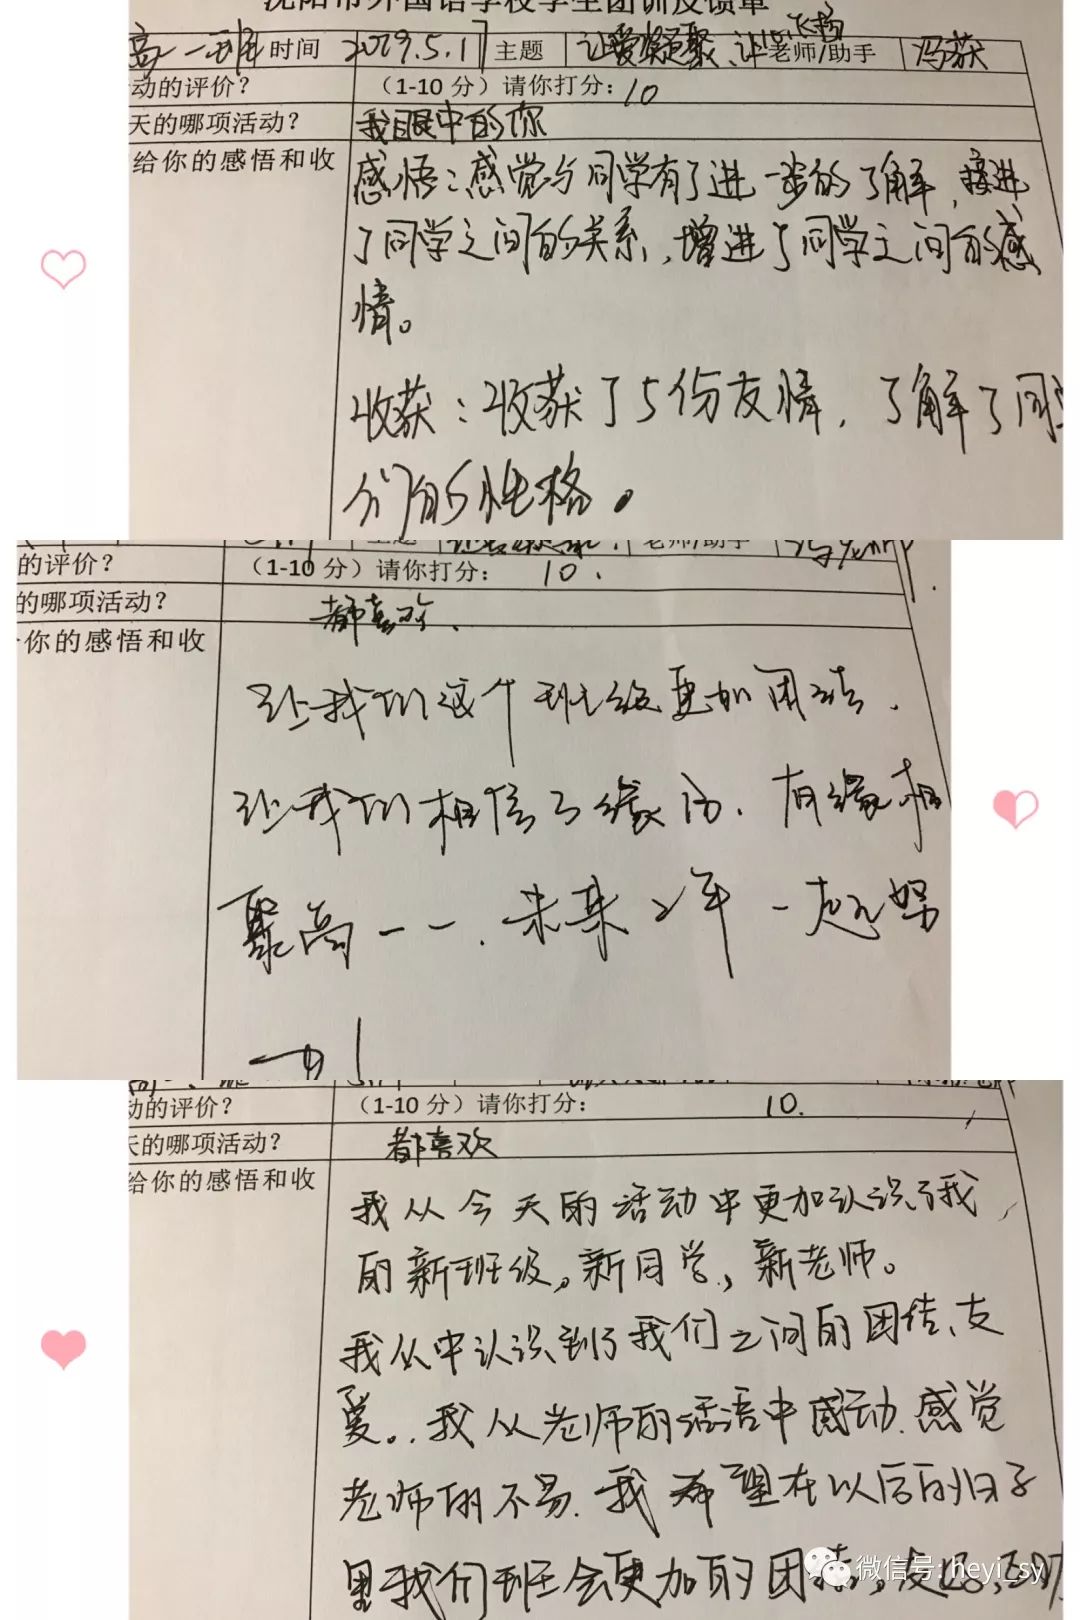 沈阳市外国语学校学生团训反馈单
高一一班 时间 2019.5.17 主题 让爱凝聚、让心飞扬 老师/助手 冯荻
动的评价? (1-10 分)请你打分:10
天的哪项活动? 我眼中的你
给你的感悟和收
感悟:感觉与同学有了进一步的了解,接进
了同学之间的关系,增进了同学之间的感
情。
收获:收获了5份友情,了解了同学
们的性格。
主题 老师/助手
的评价? (1-10 分)请你打分: 10.
的哪项活动? 都喜欢.
给你的感悟和收
让我们这个班级更加团结.
让我们相信了缘份.有缘相
聚高一一.未来2年一起努
力!
动的评价? (1-10 分)请你打分: 10.
天的哪项活动? 都喜欢
给你的感悟和收
我从今天的活动中更加认识了我
的新班级。新同学,新老师。
我从中认识到了我们之间的团结、友
爱。.我从老师的话语中感动.感觉
老师的不易.我希望在以后的日子
里我们班会更加的团结。友爱,互助
微信号: heyi_sy